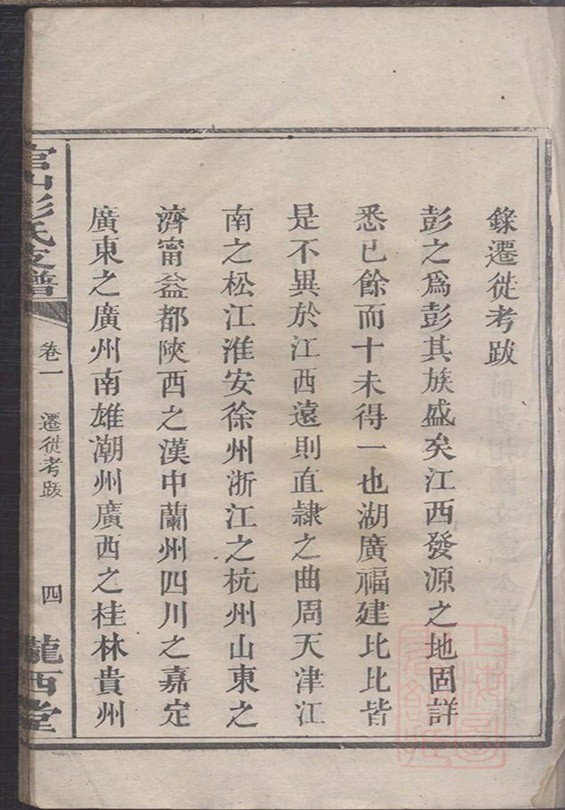 錄遷徙考跋
彭之爲彭其族盛矣江西發源之地固詳
悉已餘而十未得一也湖廣福建比比皆
是不異於江西遠則直隷之曲周天津江
南之松江淮安徐州浙江之杭州山東之
濟甯益都陝西之漢中蘭州四川之嘉定
廣東之廣州南雄潮州廣西之桂林貴州
官山彭氏支譜
卷一
遷徙考跋
四
隴西堂